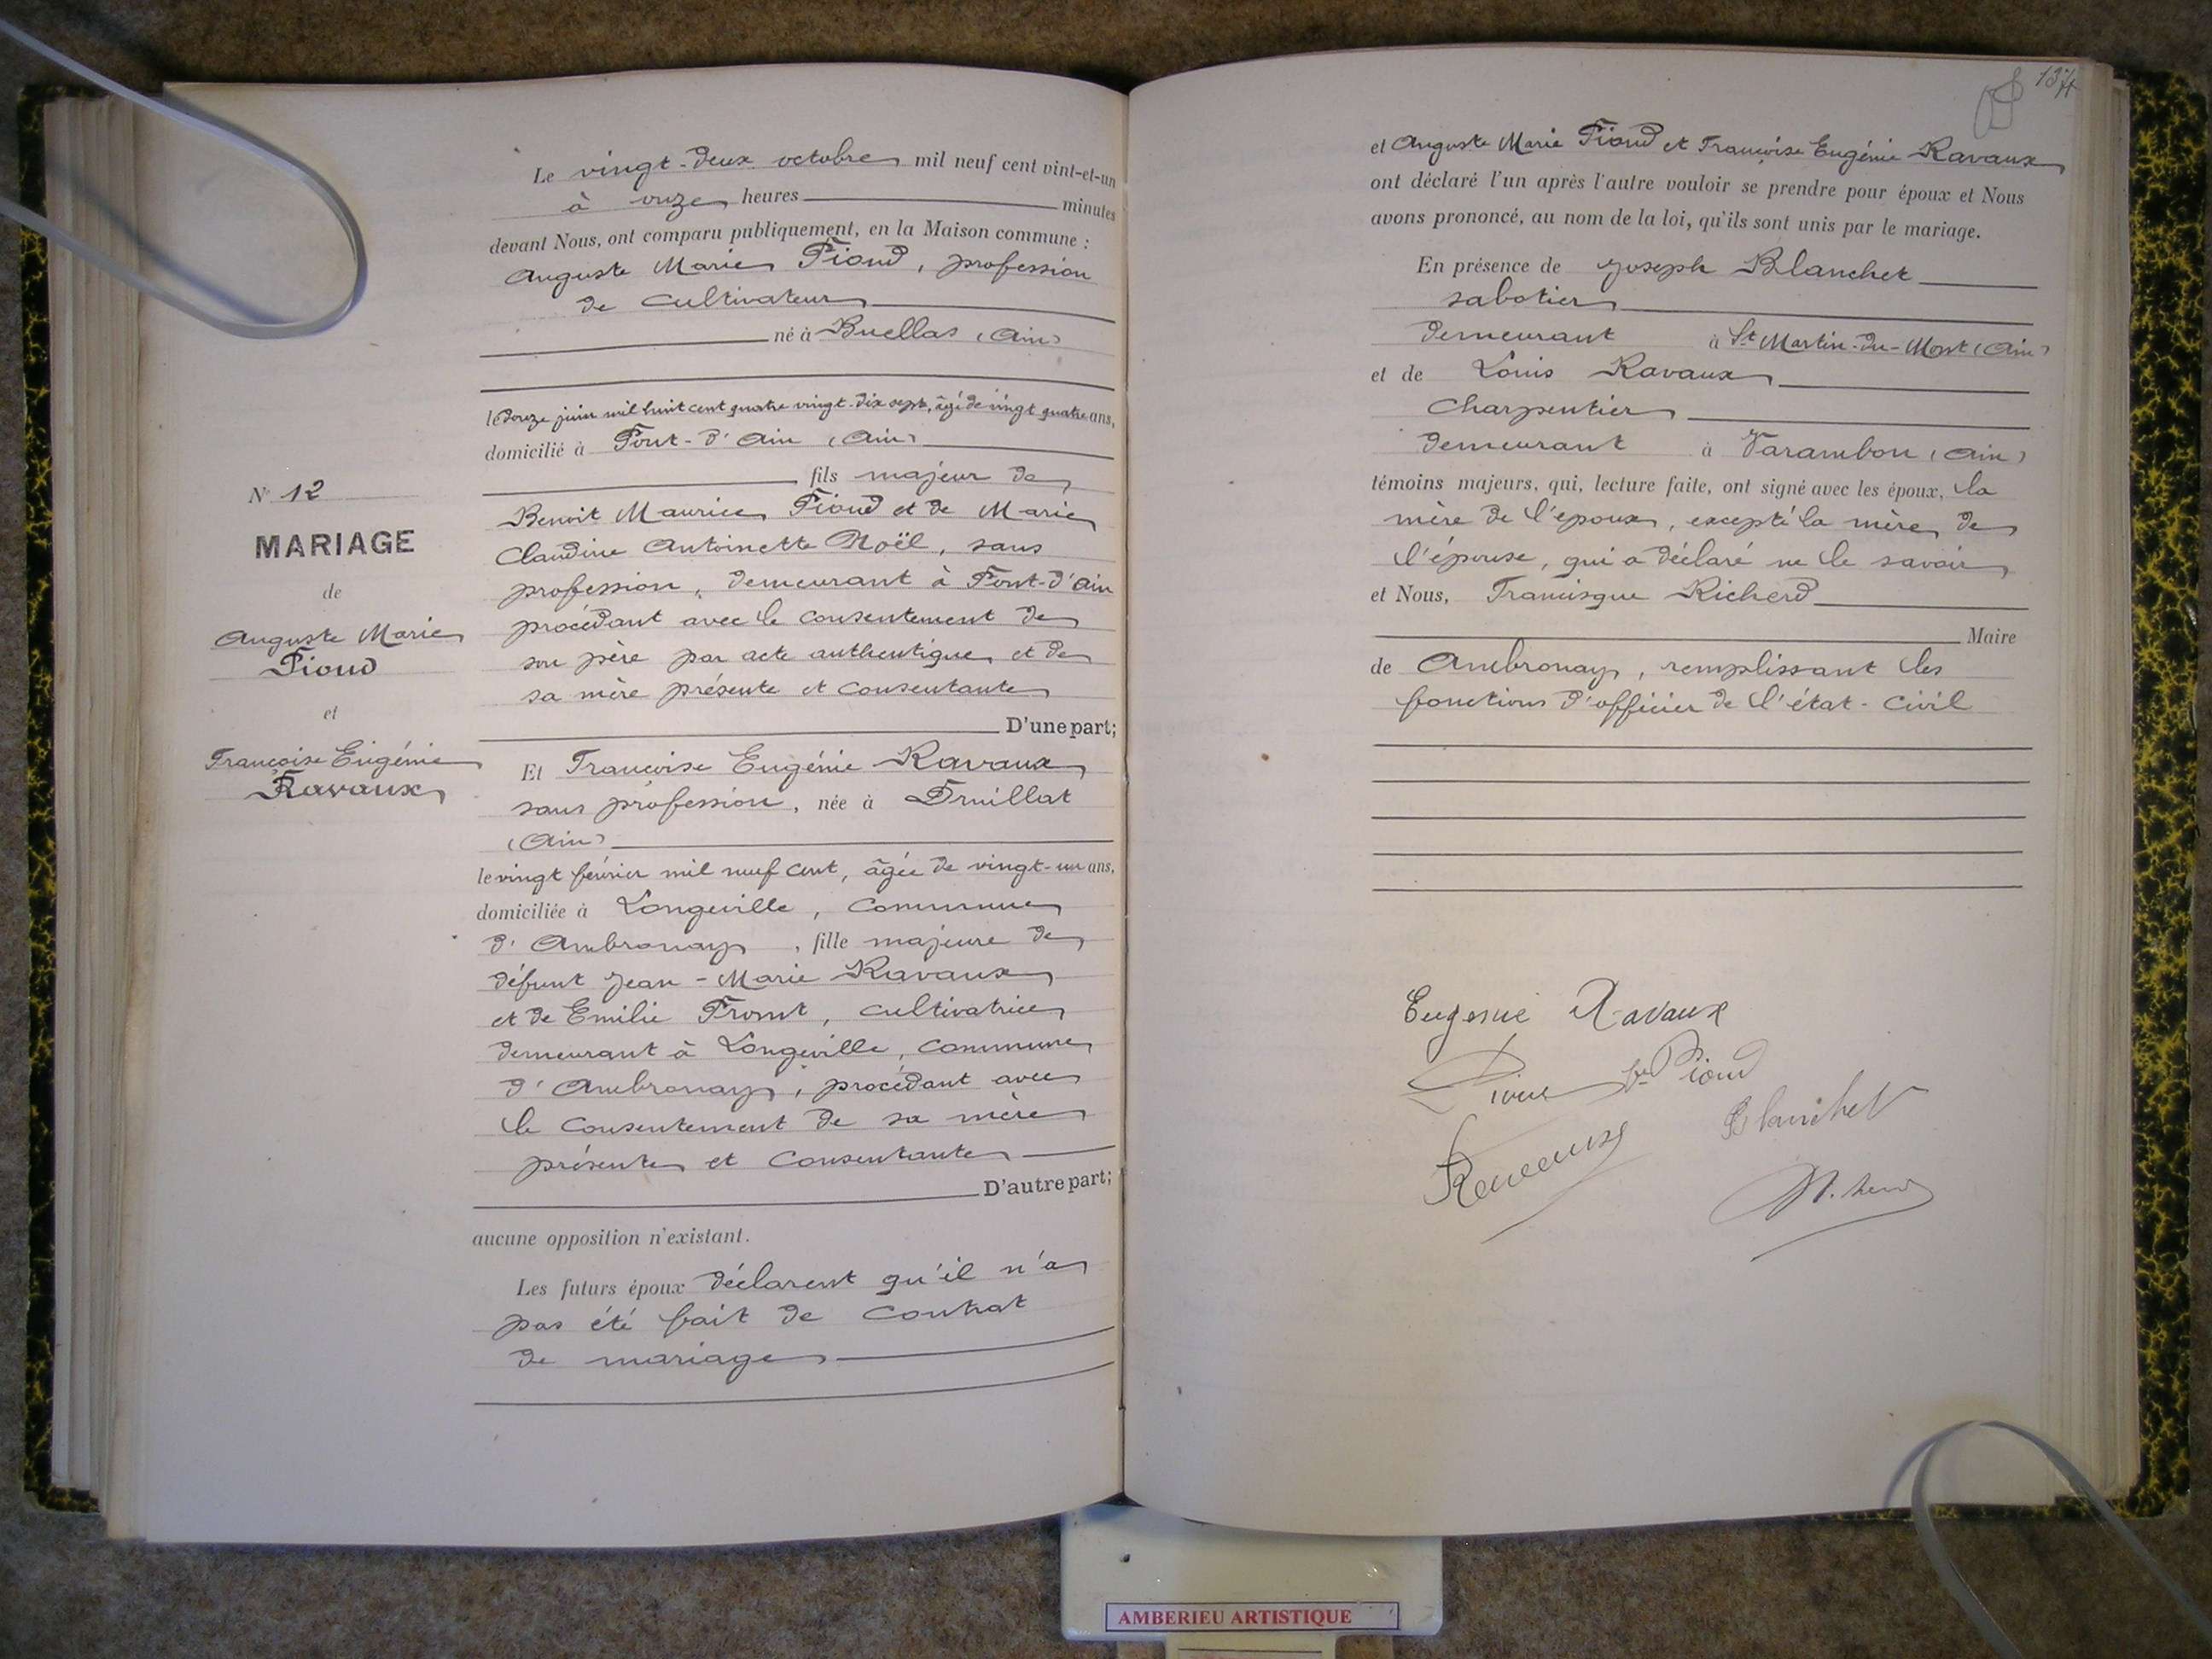 N° 12
MARIAGE
de
Auguste Marie
Pioud
et
Françoise Eugénie
Ravaux
Le vingt-deux octobre mil neuf cent vint-et-un
à onze heures minutes
devant Nous, ont comparu publiquement, en la Maison commune :
Auguste Marie Pioud, profession
de cultivateur
né à Buellas (Ain)
le douze juin mil huit cent quatre vingt-dix sept, âgé de vingt quatre ans,
domicilié à Pont-d'Ain (Ain)
fils majeur de
Benoit Maurice Pioud et de Marie
Claudine Antoinette Noël, sans
profession, demeurant à Pont-d'Ain
procédant avec le consentement de
son père par acte authentique et de
sa mère présente et consentante
D'une part;
Et Françoise Eugénie Ravaux
sans profession, née à Druillat
(Ain)
le vingt février mil neuf cent, âgée de vingt-un ans,
domiciliée à Longeville, commune
d'Ambronay, fille majeure de
défunt Jean-Marie Ravaux
et de Emilie Promt, cultivatrice
demeurant à Longeville, commune
d'Ambronay, procédant avec
le consentement de sa mère
présente et consentante
D'autre part;
aucune opposition n'existant.
Les futurs époux déclarent qu'il n'a
pas été fait de contrat
de mariage
137
et Auguste Marie Pioud et Françoise Eugénie Ravaux
ont déclaré l'un après l'autre vouloir se prendre pour époux et Nous
avons prononcé, au nom de la loi, qu'ils sont unis par le mariage.
En présence de Joseph Blanchet
sabotier
demeurant à St Martin-du-Mont (Ain)
et de Louis Ravaux
charpentier
demeurant à Varambon (Ain)
témoins majeurs, qui, lecture faite, ont signé avec les époux, la
mère de l'epoux, excepté la mère de
l'épouse, qui a déclaré ne le savoir
et Nous, Francisque Richerd
Maire
de Ambronay, remplissant les
fonctions d'officier de l'état-civil
Eugenie Ravaux
Pioud fe Pioud
Blanchet
Ravaux
AMBERIEU ARTISTIQUE